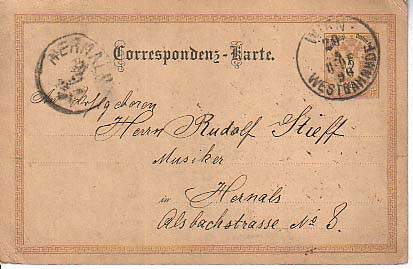 Correspondenz-Karte.
WIEN
WESTBAHNHOF
HERNALS
Herrn Rudolf Stieff
Musiker
in Hernals
Alsbachstrasse No 8.